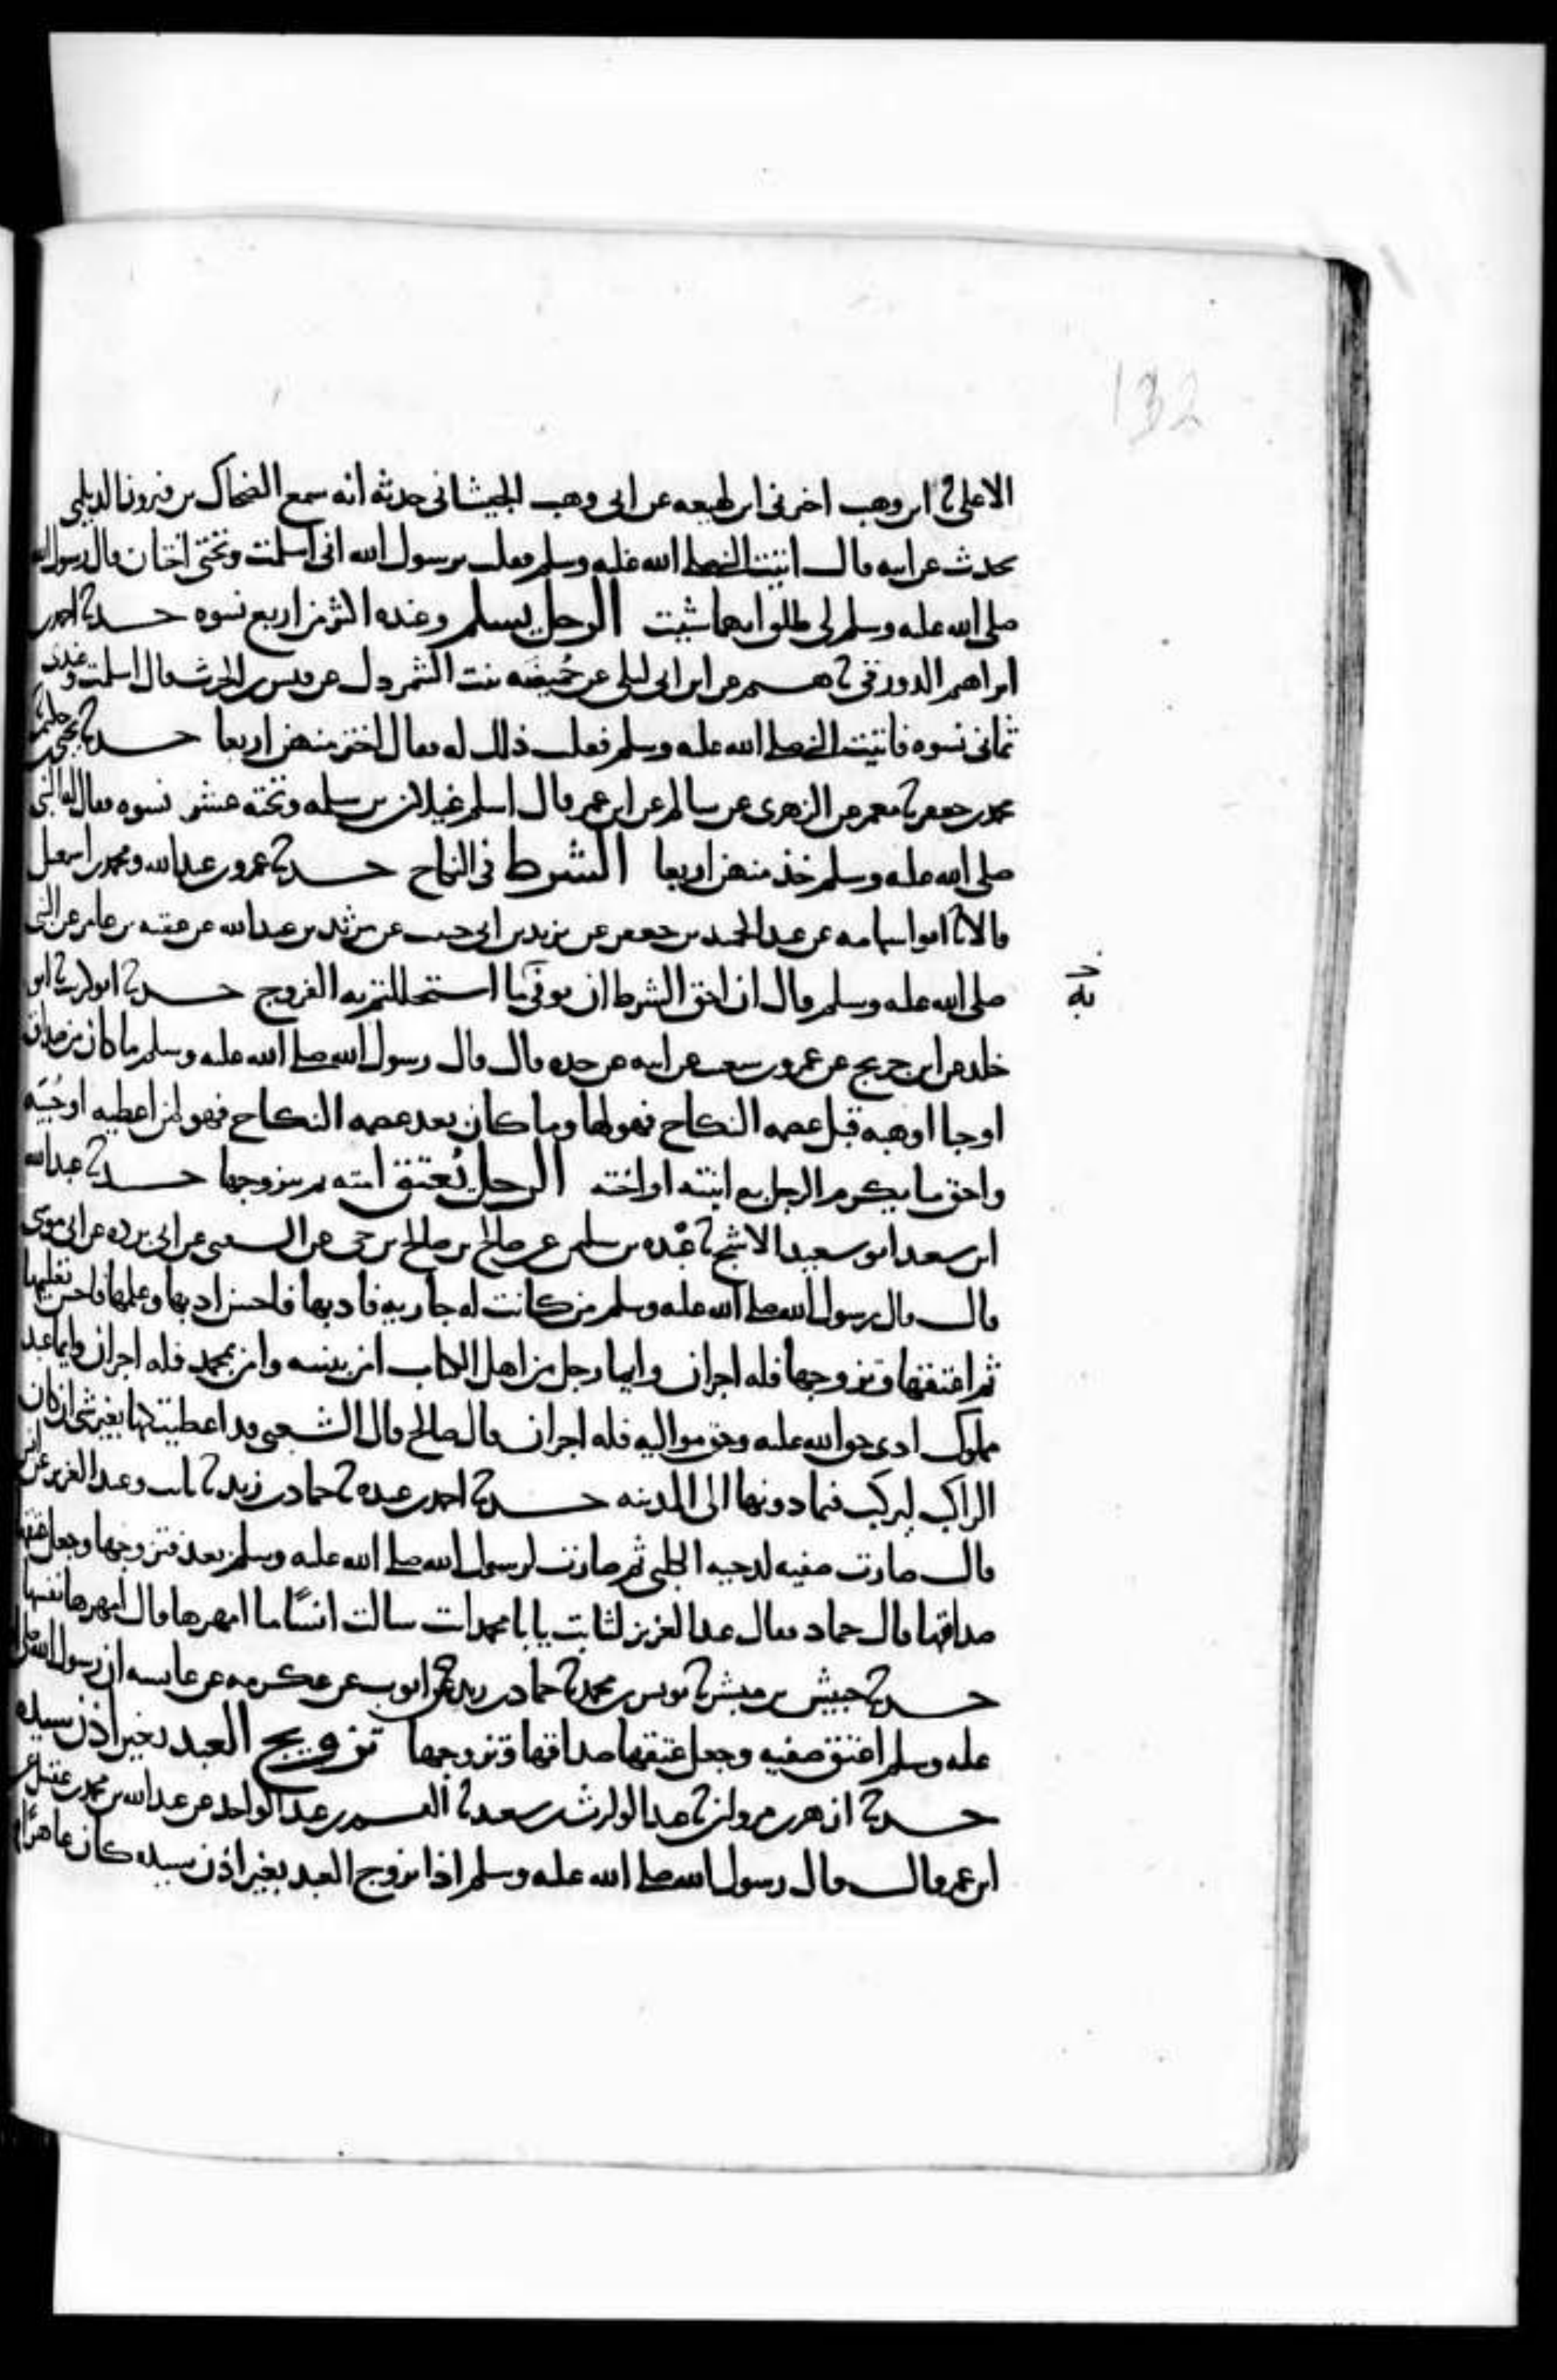 132
الاعلى ثنا ابن وهب اخبرنى ابن لهيعه عن ابى وهب الجيشانى حدثه انه سمع الضحاك بن فيروز الديلمى
يحدث عن ابيه قال اتيت النبى صلى الله عليه وسلم فقلت يرسول الله انى اسلمت وتحتى اختان قال رسول الله
صلى الله عليه وسلم لى طلق ايهما شيت الرجل يسلم وعنده اكثر من اربع نسوه حدثنا احمد بن
ابراهيم الدورقى ثنا هشيم عن ابن ابى ليلى عن حُميضَه بنت الشمردل عن قيس بن الحرث قال اسلمت وعندى
ثمانى نسوه فاتيت النبى صلى الله عليه وسلم فقلت ذلك له فقال اختر منهن اربعا حدثنا يحيى بن حكيم ثنا
محمد بن جعفر ثنا معمر عن الزهرى عن سالم عن ابن عمر قال اسلم غيلان بن سلمه وتحته عشر نسوه فقال له النبى
صلى الله عليه وسلم خذ منهن اربعا الشرط فى النكاح حدثنا عمرو بن عبدالله ومحمد بن اسمعيل
قالا ثنا ابو اسامه عن عبد الحميد بن جعفر عن يزيد بن ابى حبيب عن مرثد بن عبدالله عن عقبه بن عامر عن النبى
صلى الله عليه وسلم قال ان احق الشرط ان يوفى ما استحللتم به الفروج حدثنا ابو كريب ثنا ابو
به
خلد عن ابن جريج عن عمرو بن شعيب عن ابيه عن جده قال قال رسول الله صلى الله عليه وسلم ما كان من صداق
او حبا او هبه قبل عصمه النكاح فهو لها وما كان بعد عصمه النكاح فهو لمن اعطيه او حُبىَه
واحق ما يكرم الرجل به ابنته او اخته الرجل يُعتق امته ثم يتزوجها حدثنا عبدالله
ابن سعيد ابو سعيد الاشج ثنا عَبْده بن سليمن عن صالح بن صالح بن حى عن الشعبى عن ابى برده عن ابى موسى
قال قال رسول الله صلى الله عليه وسلم من كانت له جاريه فادبها فاحسن ادبها وعلمها فاحسن تعليمها
ثم اعتقها وتزوجها فله اجران وايما رجل من اهل الكتاب امن بنبيه وامن بمحمد فله اجران وايما عبد
مملوك ادى حق الله عليه وحق مواليه فله اجران قال صالح قال الشعبى قد اعطيتكها بغير شى ان كان
الراكب ليركب فيما دونها الى المدينه حدثنا احمد بن عبده ثنا حماد بن زيد ثنا ثابت وعبد العزيز عن انس
قال صارت صفيه لدحيه الكلبى ثم صارت لرسول الله صلى الله عليه وسلم بعد فتزوجها وجعل عتقها
صداقها قال حماد فقال عبد العزيز لثابت يا با محمد انت سالت انسًا ما امهرها قال امهرها نفسها
حدثنا حبيش بن مبشر ثنا يونس بن محمد ثنا حماد بن زيد عن ايوب عن عكرمه عن عايشه ان رسول الله صلى الله
عليه وسلم اعتق صفيه وجعل عتقها صداقها وتزوجها تزويج العبد بغير اذن سيده
حدثنا ازهر بن مروان ثنا عبد الوارث بن سعيد ثنا القسم بن عبد الواحد عن عبد الله بن محمد بن عقيل عن
ابن عمر قال قال رسول الله صلى الله عليه وسلم اذا تزوج العبد بغير اذن سيده كان عاهرًا